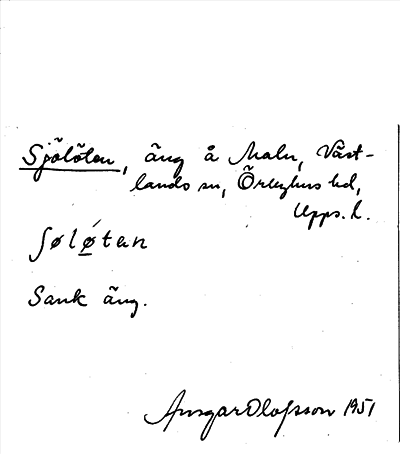 Sjölöten, äng å Malen, Väst-
lands sn, Örbyhus hd,
Upps. l.
ʃøløt́en
Sank äng.
Ansgar Olofsson 1951